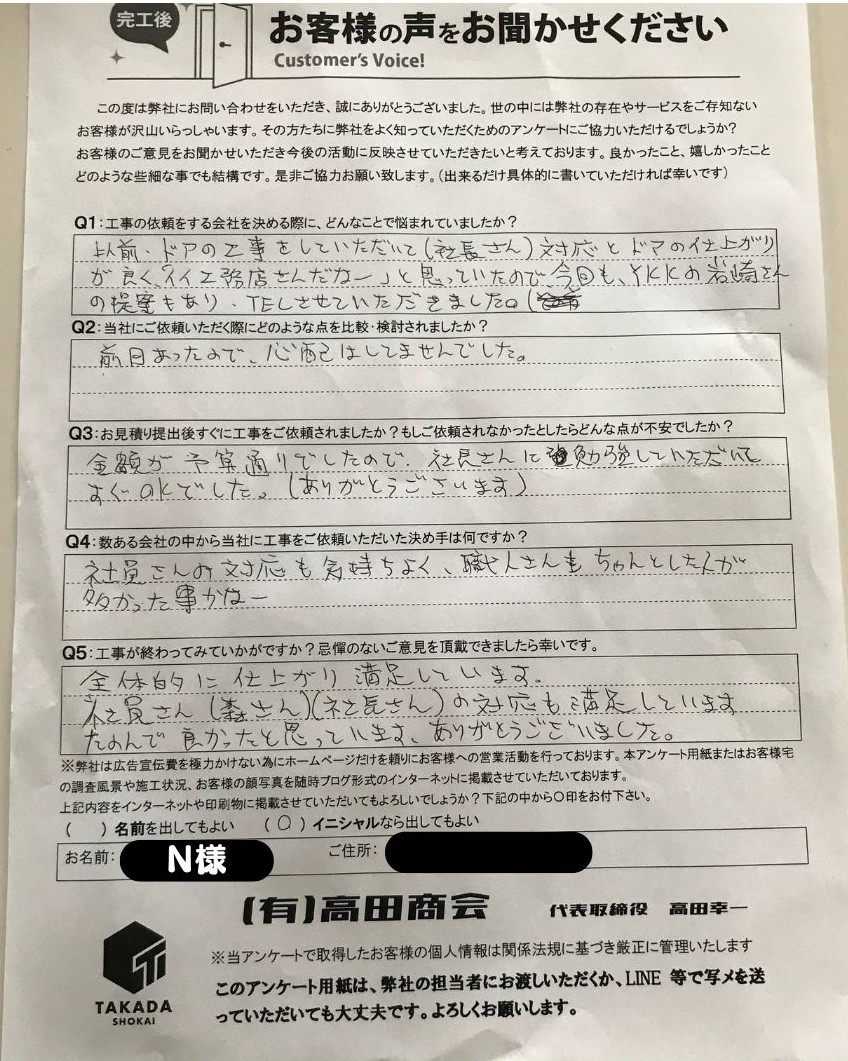 完工後
お客様の声をお聞かせください
Customer's Voice!
この度は弊社にお問い合わせをいただき、誠にありがとうございました。世の中には弊社の存在やサービスをご存知ない
お客様が沢山いらっしゃいます。その方たちに弊社をよく知っていただくためのアンケートにご協力いただけるでしょうか?
お客様のご意見をお聞かせいただき今後の活動に反映させていただきたいと考えております。良かったこと、嬉しかったこと
どのような些細な事でも結構です。是非ご協力お願い致します。(出来るだけ具体的に書いていただければ幸いです)
Q1:工事の依頼をする会社を決める際に、どんなことで悩まれていましたか?
以前・ドアの工事をしていただいて(社長さん)対応とドアの仕上がり
が良く、「イイ工務店さんだなー」と思っていたので、今回も、YKKの岩崎さん
の提案もあり、TELさせていただきました。(
Q2:当社にご依頼いただく際にどのような点を比較・検討されましたか?
前回あったので、心配はしてませんでした。
Q3:お見積り提出後すぐに工事をご依頼されましたか?もしご依頼されなかったとしたらどんな点が不安でしたか?
金額が予算通りでしたので、社長さんに勉強していただいて
すぐOKでした。(ありがとうございます)
Q4:数ある会社の中から当社に工事をご依頼いただいた決め手は何ですか?
社員さんの対応も気持ちよく、職人さんもちゃんとした人が
多かった事かなー
Q5:工事が終わってみていかがですか?忌憚のないご意見を頂戴できましたら幸いです。
全体的に仕上がり満足しています。
社員さん(森さん)(社長さん)の対応も満足しています
たのんで良かったと思っています、ありがとうございました。
※弊社は広告宣伝費を極力かけない為にホームページだけを頼りにお客様への営業活動を行っております。本アンケート用紙またはお客様宅
の調査風景や施工状況、お客様の顔写真を随時ブログ形式のインターネットに掲載させていただいております。
上記内容をインターネットや印刷物に掲載させていただいてもよろしいでしょうか?下記の中から○印をお付下さい。
( )名前を出してもよい (○)イニシャルなら出してもよい
お名前: N様 ご住所:
(有)高田商会 代表取締役 高田幸一
※当アンケートで取得したお客様の個人情報は関係法規に基づき厳正に管理いたします
このアンケート用紙は、弊社の担当者にお渡しいただくか、LINE 等で写メを送
っていただいても大丈夫です。よろしくお願いします。
TAKADA
SHOKAI